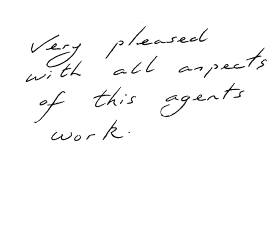 Very pleased
with all aspects
of this agents
work.